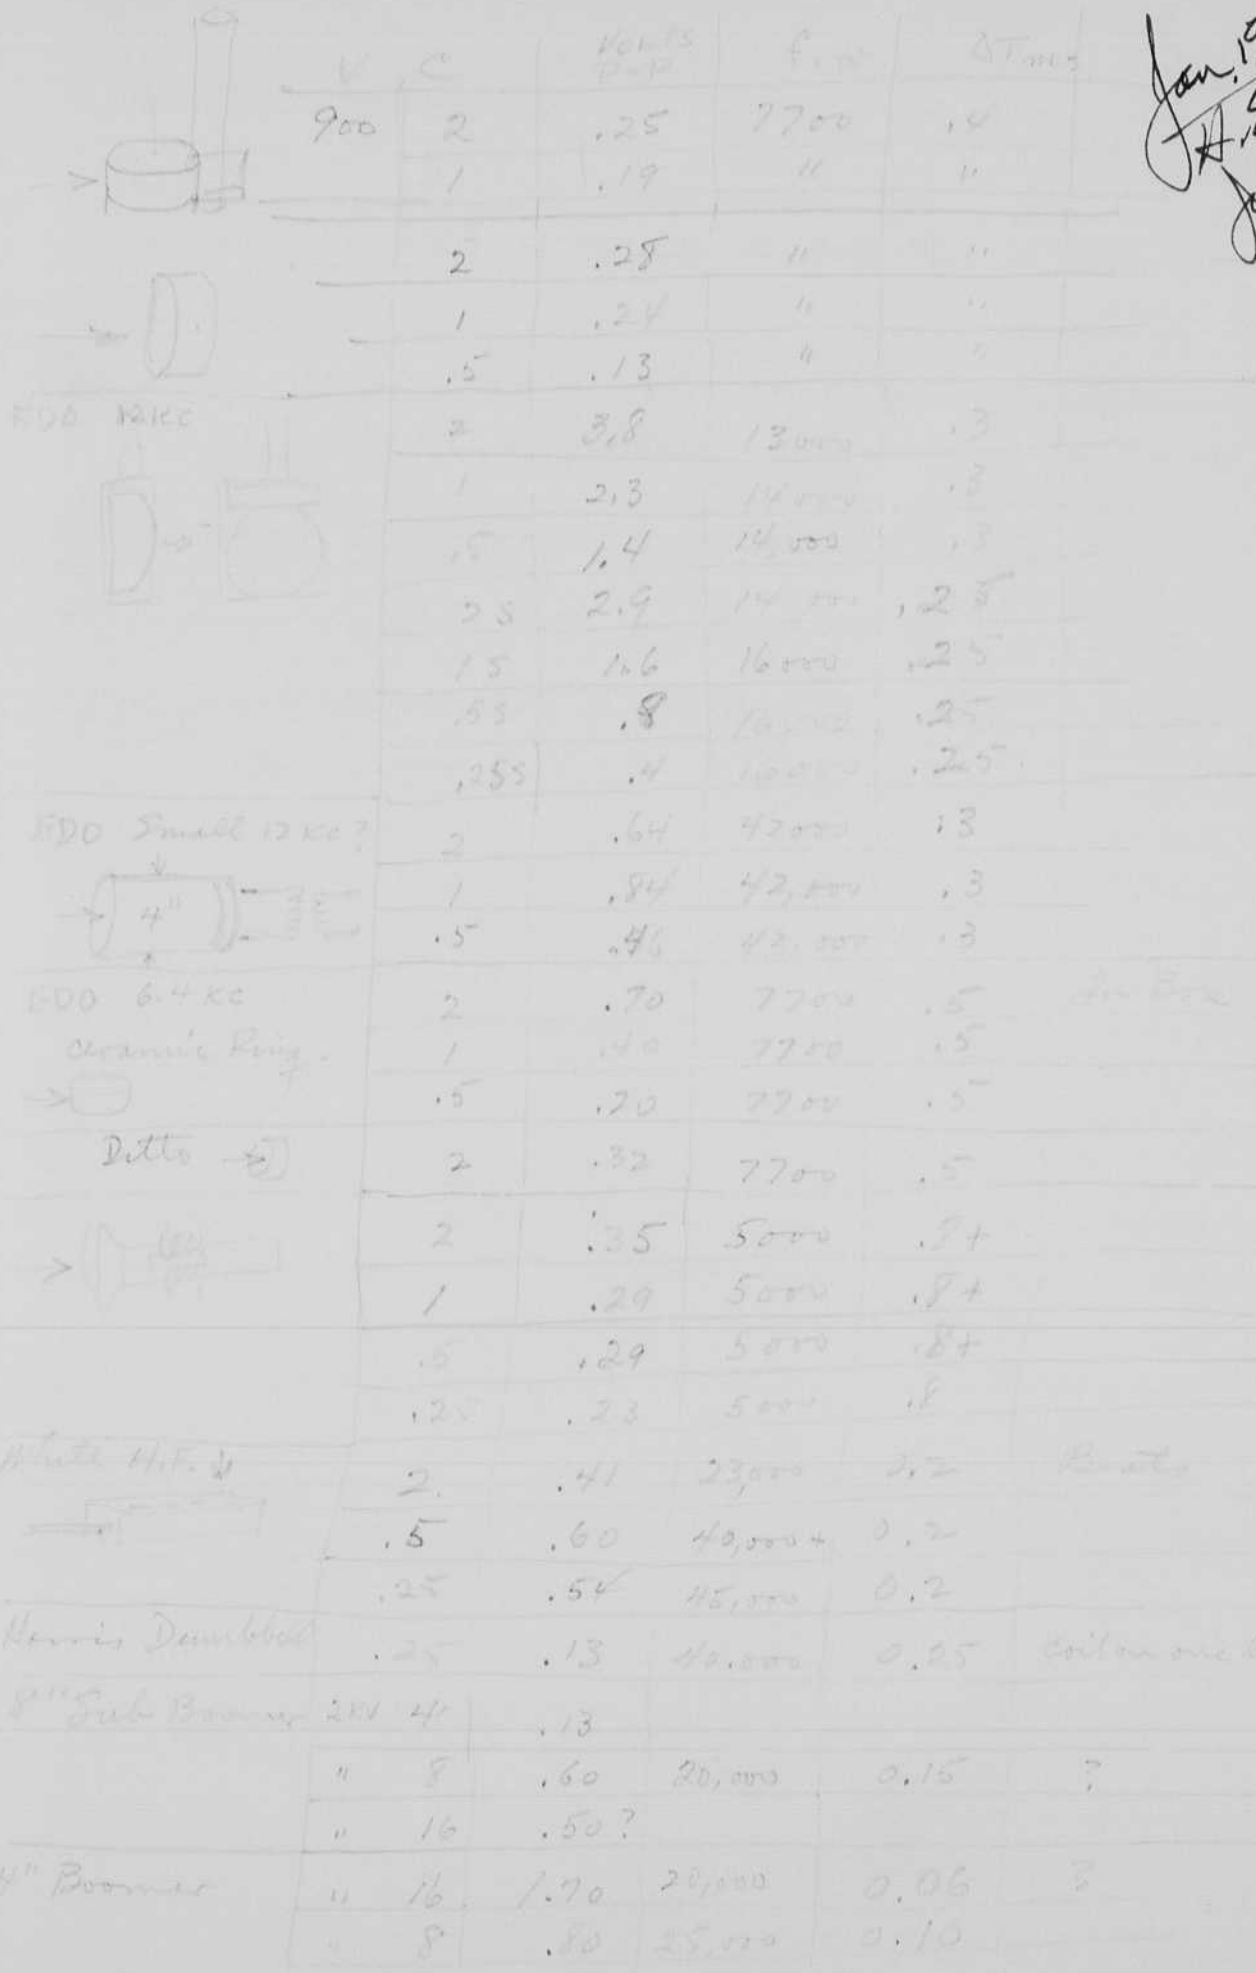 V C Volts P-P f ΔT ms
900 2 .25 7700 .4
1 .19 " "
2 .28 " "
1 .24 " "
.5 .13 " "
EDO 12 KC
2 3.8 13000 .3
1 2.3 14000 .3
.5 1.4 14,000 .3
2 S 2.9 14 000 .25
1 S 1.6 16000 .25
.5 S .8 .25
.25 S .4 .25
EDO Small 12 KC?
4"
2 .64 42000 .3
1 .84 42,000 .3
.5 .46 42,000 .3
EDO 6.4 KC
Ceramic Ring.
2 .70 7700 .5
1 .40 7700 .5
.5 .20 7700 .5
Ditto 2 .32 7700 .5
2 .35 5000 .8+
1 .29 5000 .8+
.5 .29 5000 .8+
.25 .23 5000 .8
White H.F.
2. .41 23,000 0.2
.5 .60 40,000+ 0.2
.25 .54 45,000 0.2
.25 .13 40.000 0.25 coil on one
8" Sub Boomer 2KV 4 .13
" 8 .60 20,000 0.15 ?
" 16 .50?
4" Boomer " 16 1.70 20,000 0.06
" 8 .80 25,000 0.10
Jan.